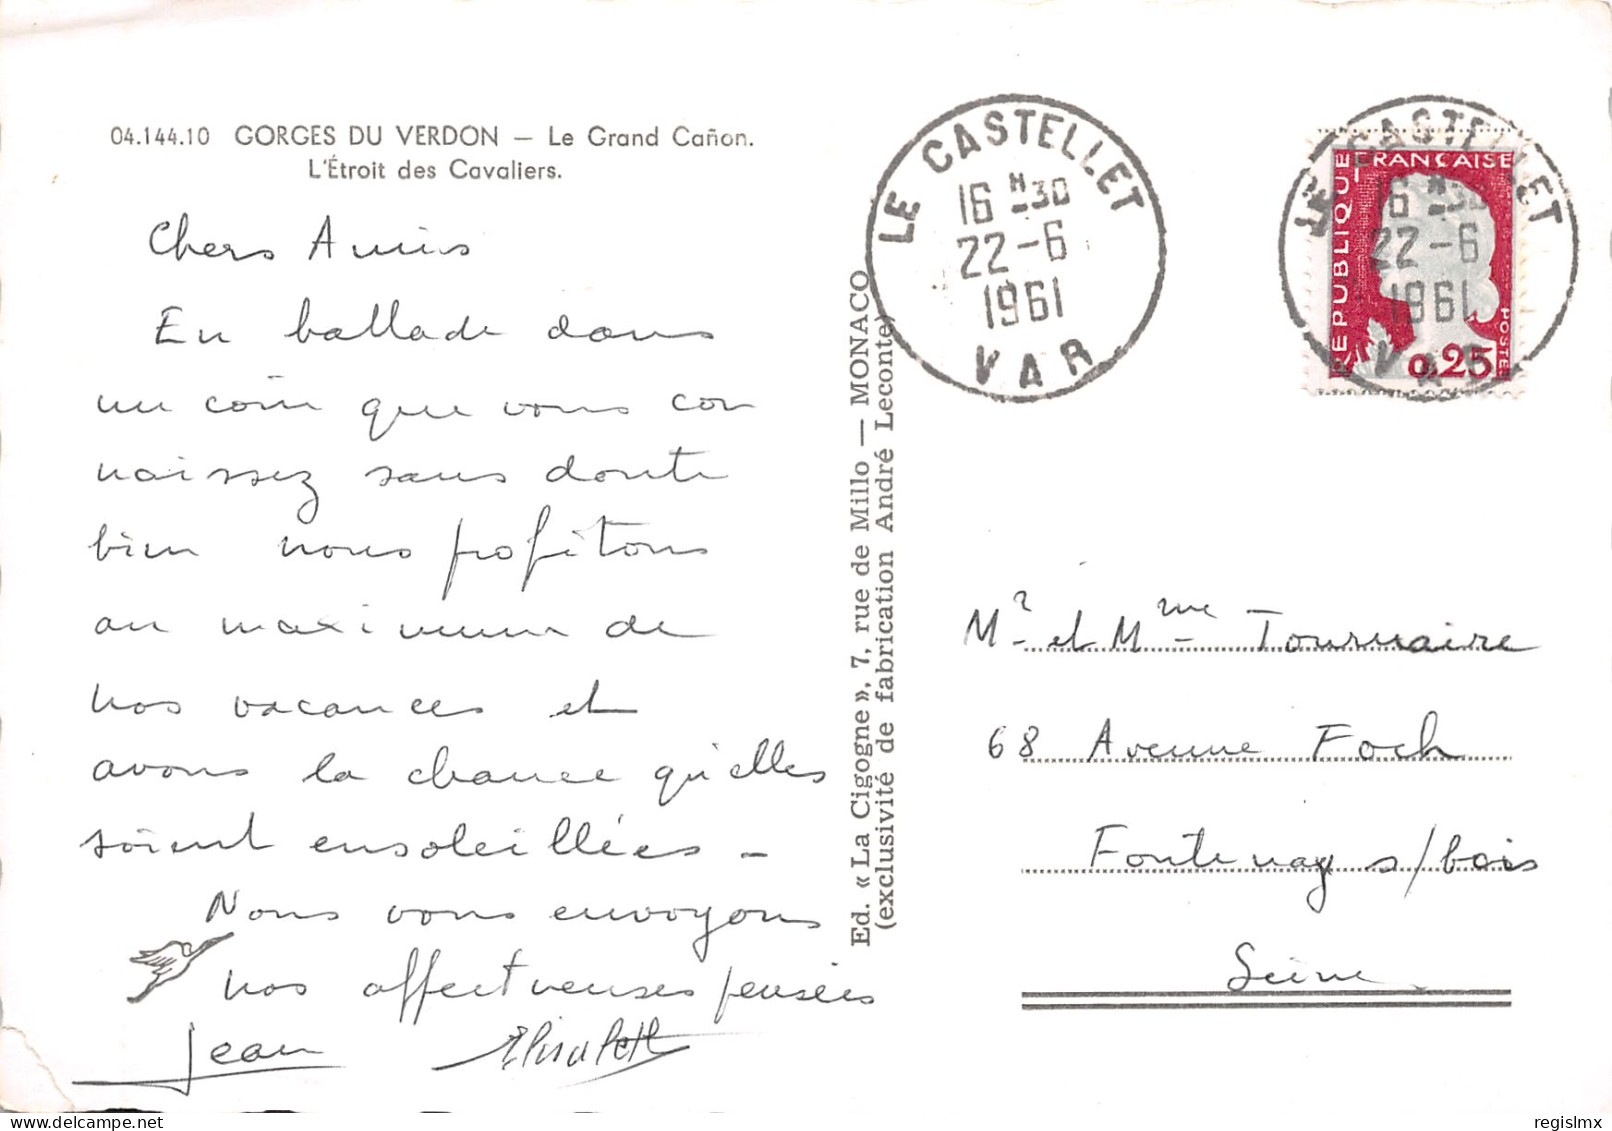 04.144.10 GORGES DU VERDON — Le Grand Cañon.
L'Étroit des Cavaliers.
Chers Amis
En ballade dans
un coin que vous con
naissez sans doute
bien nous profitons
au maximum de
nos vacances et
avons la chance qu'elles
soient ensoleillées –
Nous vous envoyons
nos affectueuses pensées
Jean Elisabeth
Ed. « La Cigogne », 7, rue de Millo — MONACO
(exclusivité de fabrication André Leconte)
LE CASTELLET
16 H 30
22-6
1961
VAR
LE CASTELLET
16 H 30
22-6
1961
VAR
RÉPUBLIQUE FRANÇAISE
POSTES
0,25
Mr et Mme Tournaire
68 Avenue Foch
Fontenay s/bois
Seine
regislmx